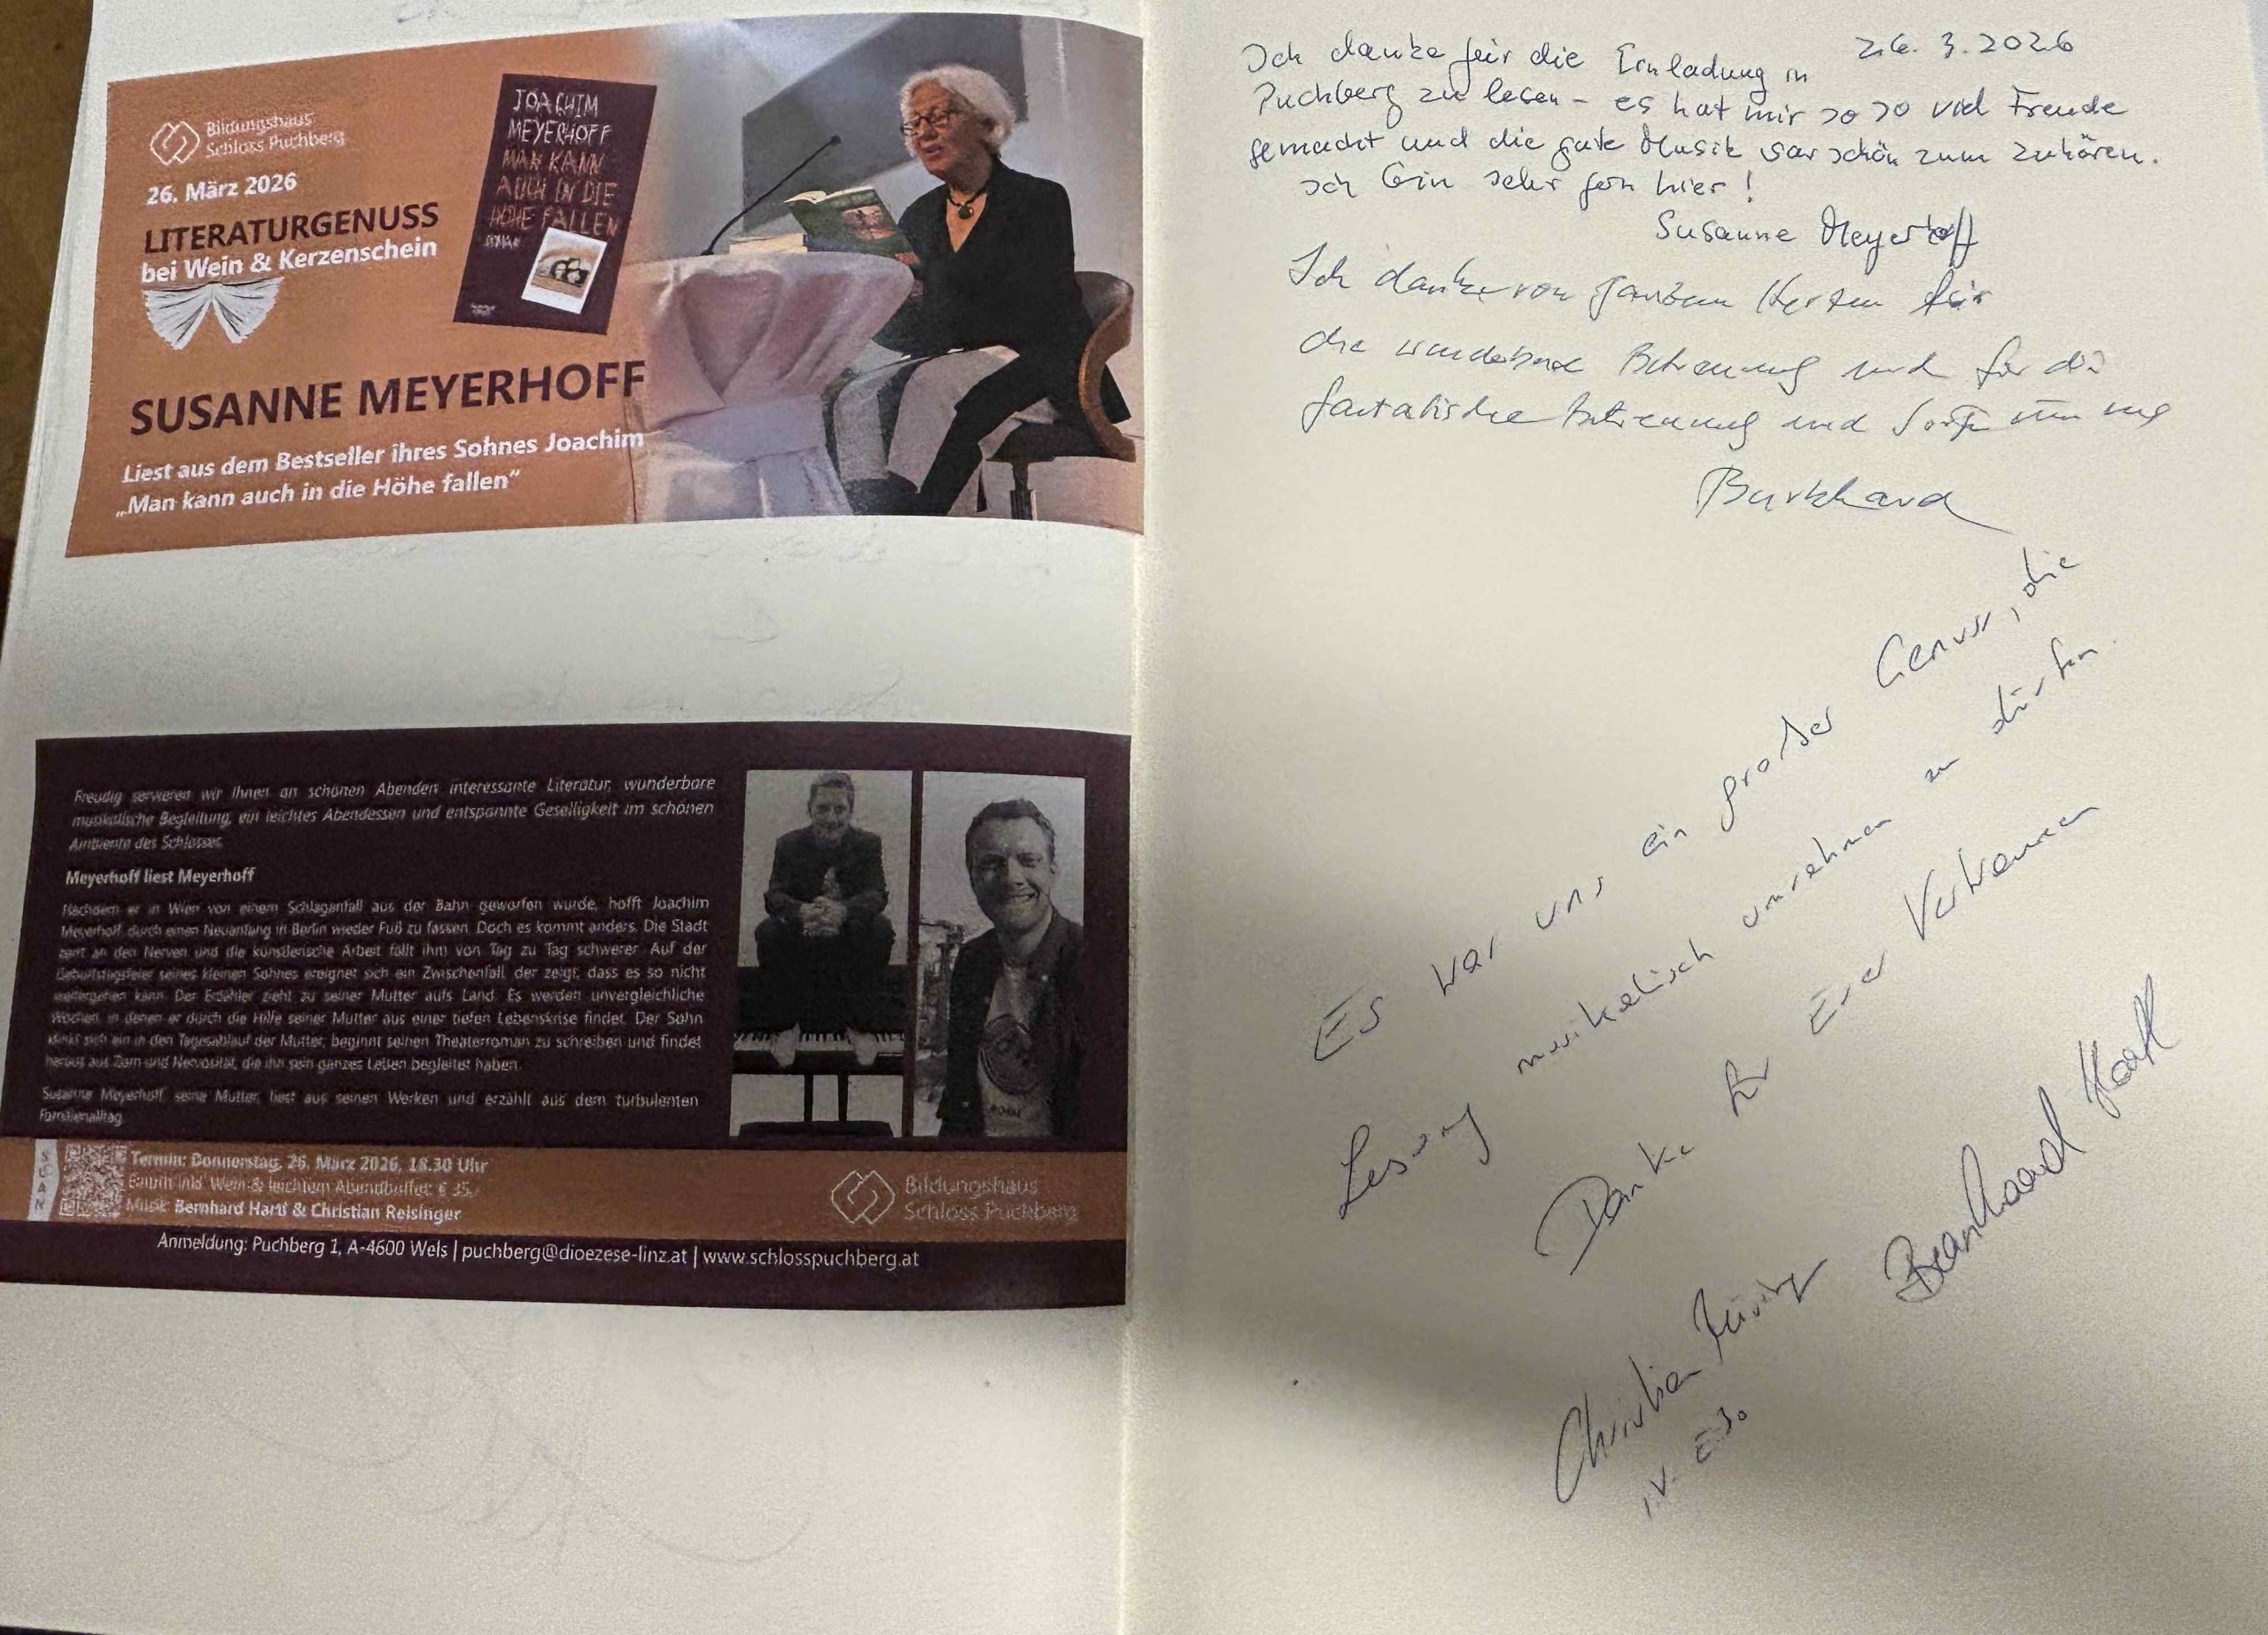 Bildungshaus
Schloss Puchberg
26. März 2026
LITERATURGENUSS
bei Wein & Kerzenschein
JOACHIM
MEYERHOFF
MAN KANN
AUCH IN DIE
HÖHE FALLEN
SUSANNE MEYERHOFF
Liest aus dem Bestseller ihres Sohnes Joachim
„Man kann auch in die Höhe fallen“
Freudig servieren wir Ihnen an schönen Abenden interessante Literatur, wunderbare
musikalische Begleitung, ein leichtes Abendessen und entspannte Geselligkeit im schönen
Ambiente des Schlosses.
Meyerhoff liest Meyerhoff
Nachdem er in Wien von einem Schlaganfall aus der Bahn geworfen wurde, hofft Joachim
Meyerhoff durch einen Neuanfang in Berlin wieder Fuß zu fassen. Doch es kommt anders. Die Stadt
zerrt an den Nerven und die künstlerische Arbeit fällt ihm von Tag zu Tag schwerer. Auf der
Geburtstagsfeier seines kleinen Sohnes ereignet sich ein Zwischenfall der zeigt, dass es so nicht
weitergehen kann. Der Erzähler zieht zu seiner Mutter aufs Land. Es werden unvergleichliche
Wochen, in denen er durch die Hilfe seiner Mutter aus einer tiefen Lebenskrise findet. Der Sohn
klinkt sich ein in den Tagesablauf der Mutter, beginnt seinen Theaterroman zu schreiben und findet
heraus aus Zorn und Nervosität, die ihn sein ganzes Leben begleitet haben.
Susanne Meyerhoff, seine Mutter, liest aus seinen Werken und erzählt aus dem turbulenten
Familienalltag.
SCAN
Termin: Donnerstag, 26. März 2026, 18.30 Uhr
inkl. Wein & leichtem Abendbuffet: € 35,-
Musik: Bernhard Hartl & Christian Reisinger
Bildungshaus
Schloss Puchberg
Anmeldung: Puchberg 1, A-4600 Wels | puchberg@dioezese-linz.at | www.schlosspuchberg.at
26. 3. 2026
Ich danke für die Einladung in
Puchberg zu lesen – es hat mir so so viel Freude
gemacht und die gute Musik war schön zum zuhören.
Ich bin sehr gern hier!
Susanne Meyerhoff
Ich danke von ganzem Herzen für
die wunderbare Betreuung und für die
fantastische Betreuung und Sorge um uns
Burkhard
Es war uns ein großer Genuss, die
Lesung musikalisch umrahmen zu dürfen.
Danke für Euer Vertrauen
Christian Reisinger
Bernhard Hartl